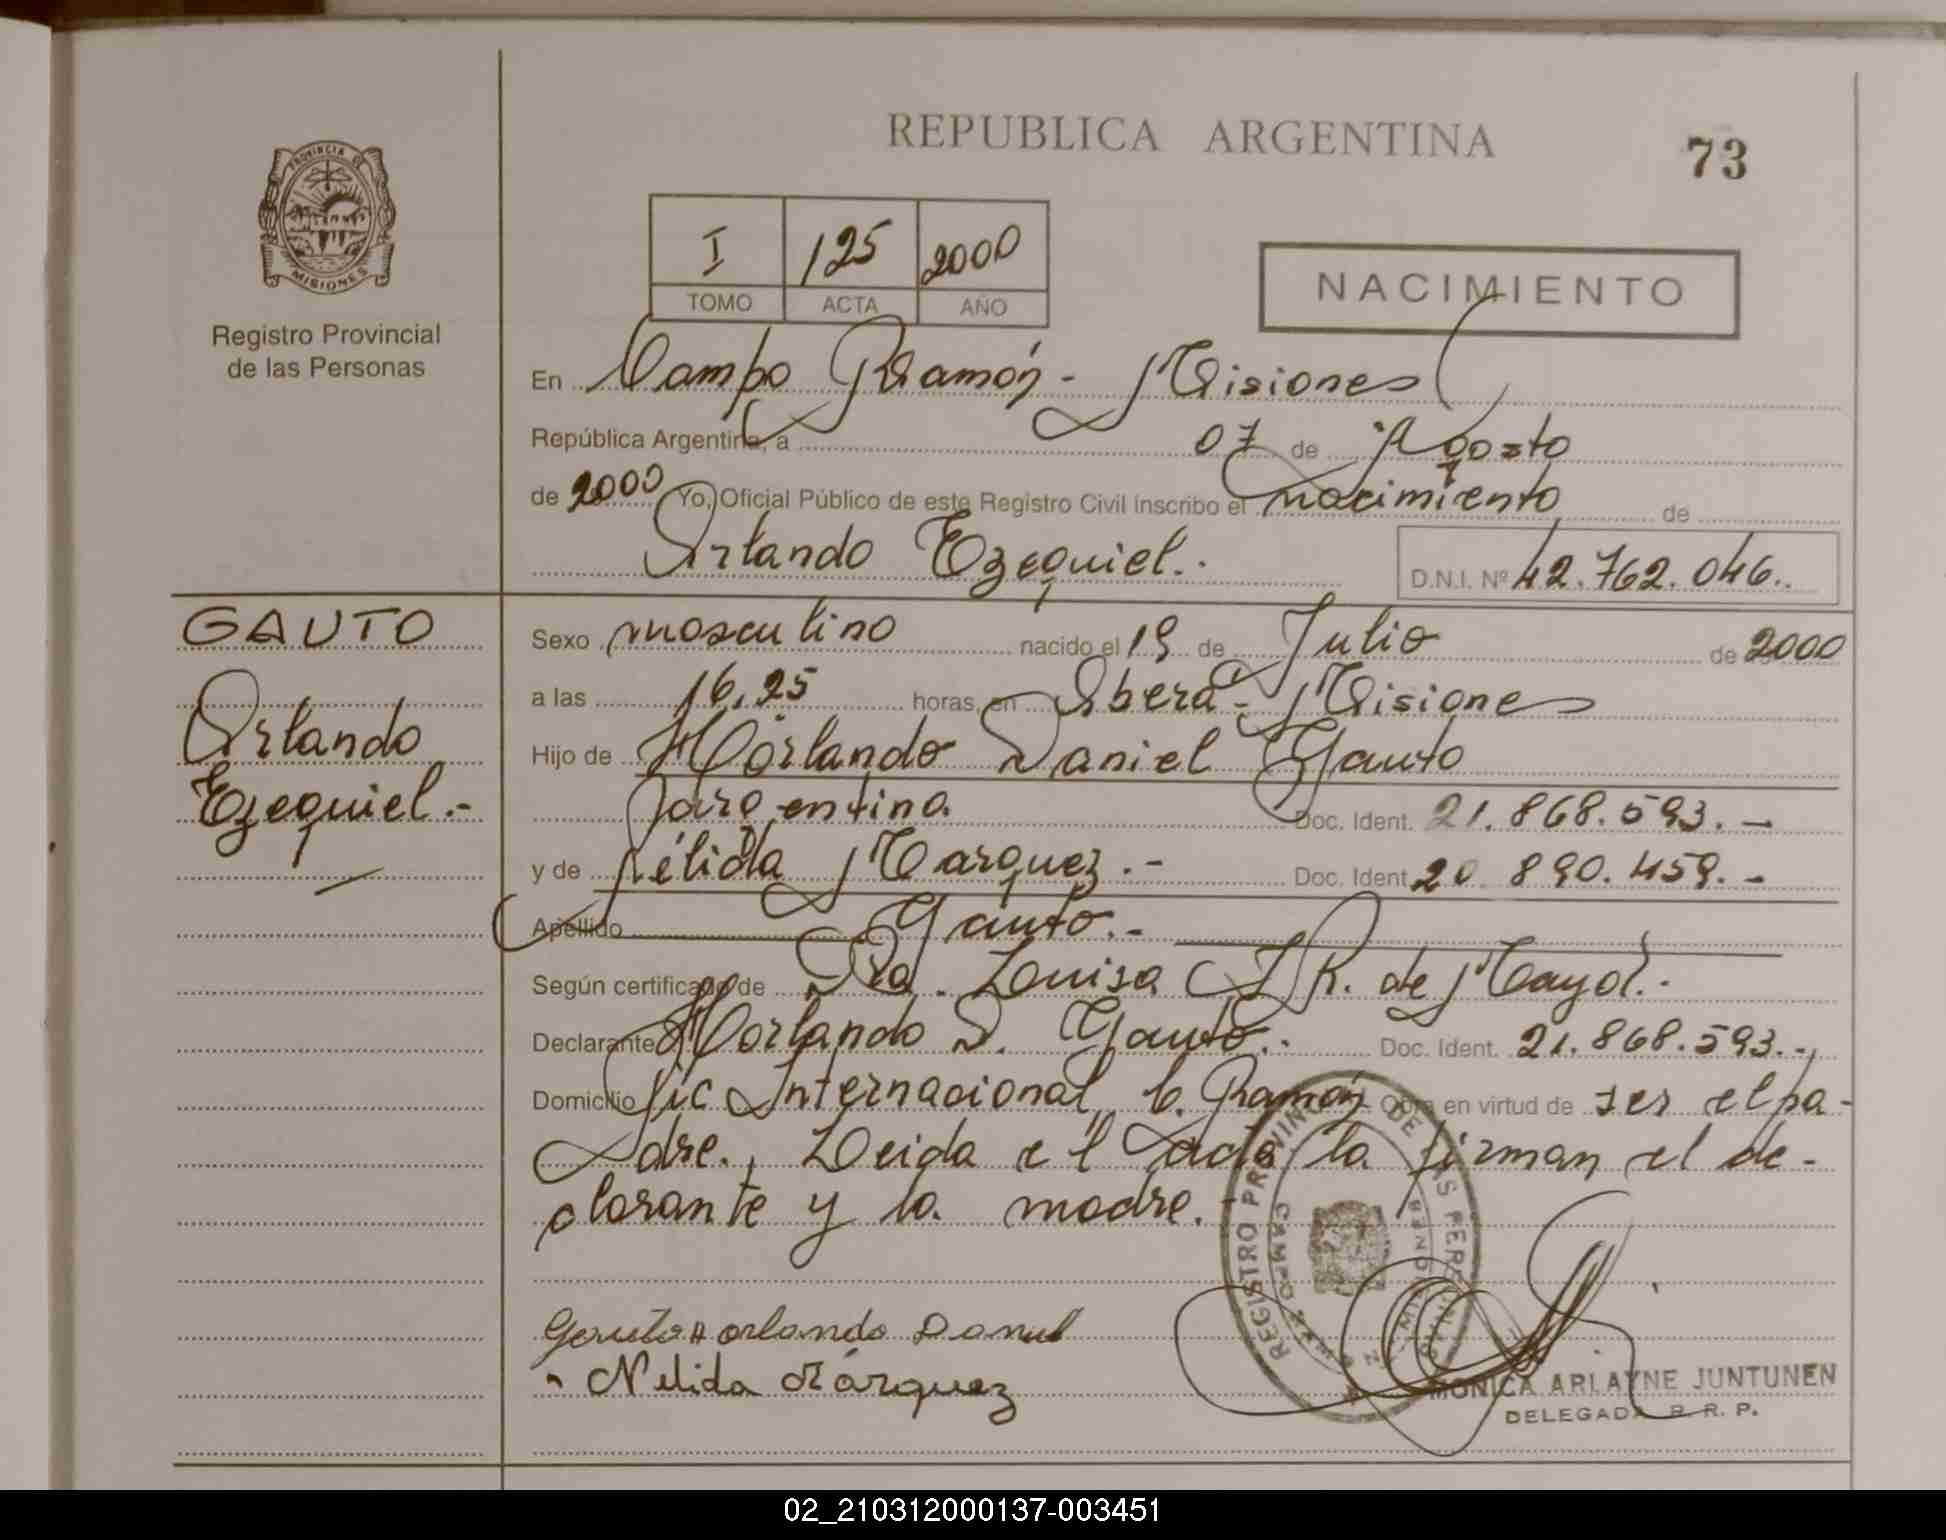 REPUBLICA ARGENTINA
73
PROVINCIA DE
MISIONES
Registro Provincial
de las Personas
I 125 2000
TOMO ACTA AÑO
NACIMIENTO
En Campo Ramón - Misiones
República Argentina, a 07 de Agosto
de 2000 Yo, Oficial Público de este Registro Civil inscribo el nacimiento de
Orlando Ezequiel.-
D.N.I. Nº 42.762.046.
GAUTO
Orlando
Ezequiel.-
Sexo masculino nacido el 19 de Julio de 2000
a las 16,25 horas, en Oberá - Misiones
Hijo de Horlando Daniel Gauto
Argentina Doc. Ident. 21.868.593.-
y de Nélida Marquez.- Doc. Ident. 20.890.459.-
Apellido Gauto.-
Según certificado de Dra. Luisa R. de Mayol.-
Declarante Horlando D. Gauto.- Doc. Ident. 21.868.593.-
Domicilio Pic Internacional, C. Ramón Obra en virtud de ser el pa-
dre., Leida el acta la firman el de-
clarante y la madre.-
Gauto Horlando Daniel
Nelida Márquez
REGISTRO PROVINCIAL DE LAS PERSONAS
CAMPO RAMON
MISIONES
MONICA ARLAYNE JUNTUNEN
DELEGADA R. R. P.
02_210312000137-003451